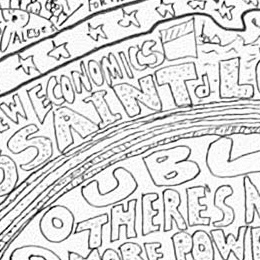 FOR
VALEY
EW ECONOMICS
OSAINT d LO
OUBL
THERES N
MORE POWE